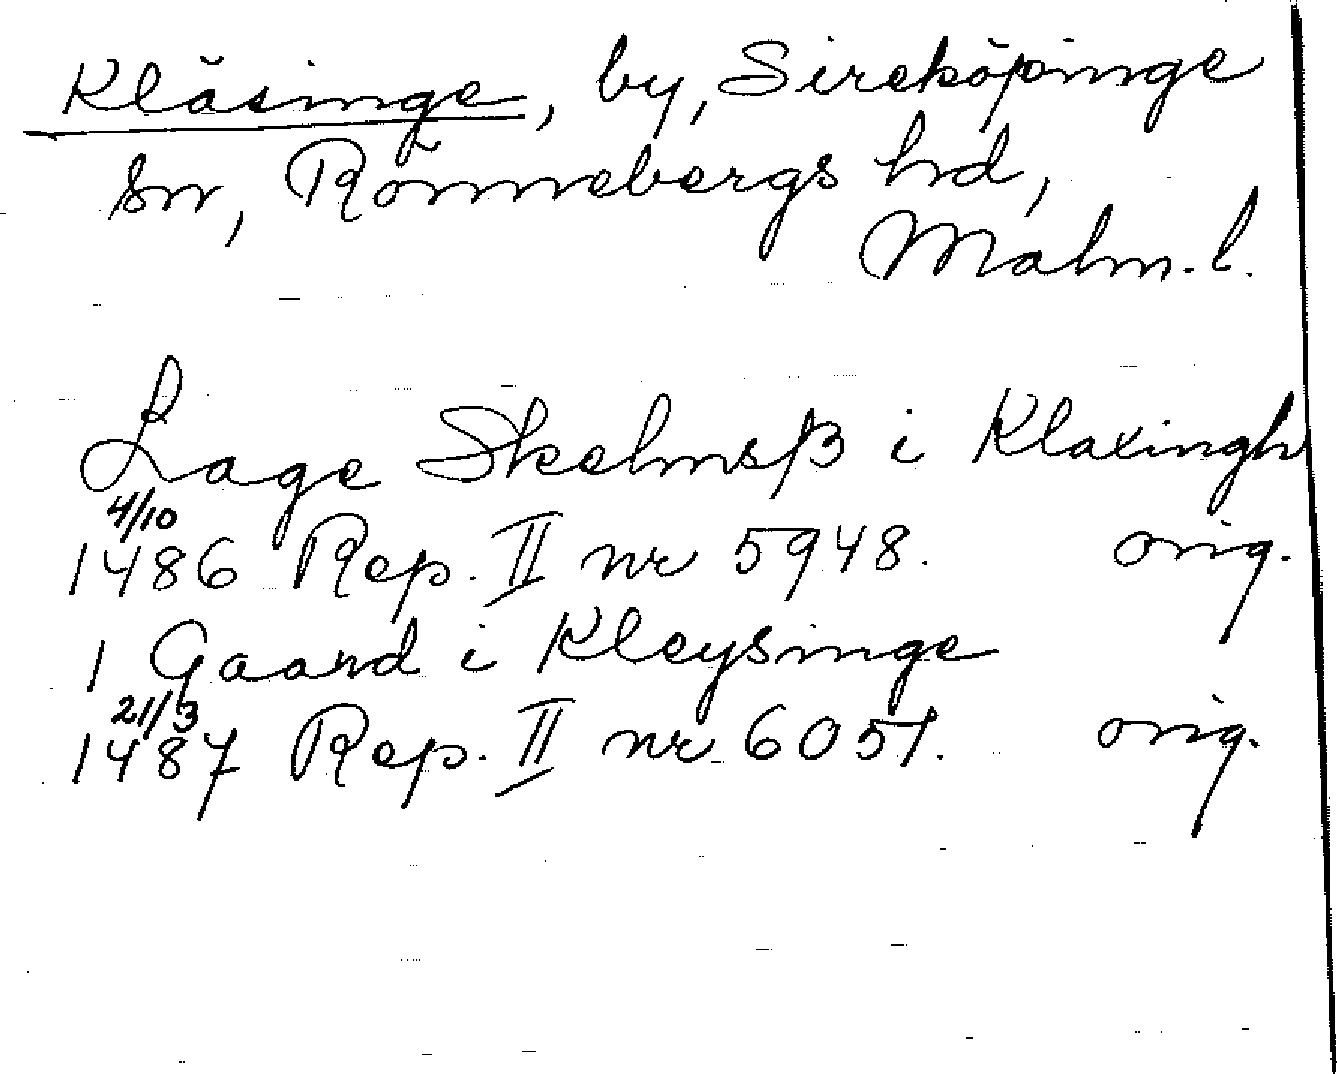 Kläsinge, by, Sireköpinge
sn, Rönnebergs hd,
Malm. l.
Lage Skelmsß i Klaxingh
4/10
1486 Rep. II nr 5948. orig.
1 Gaard i Kleysinge
21/3
1487 Rep. II nr 6051. orig.